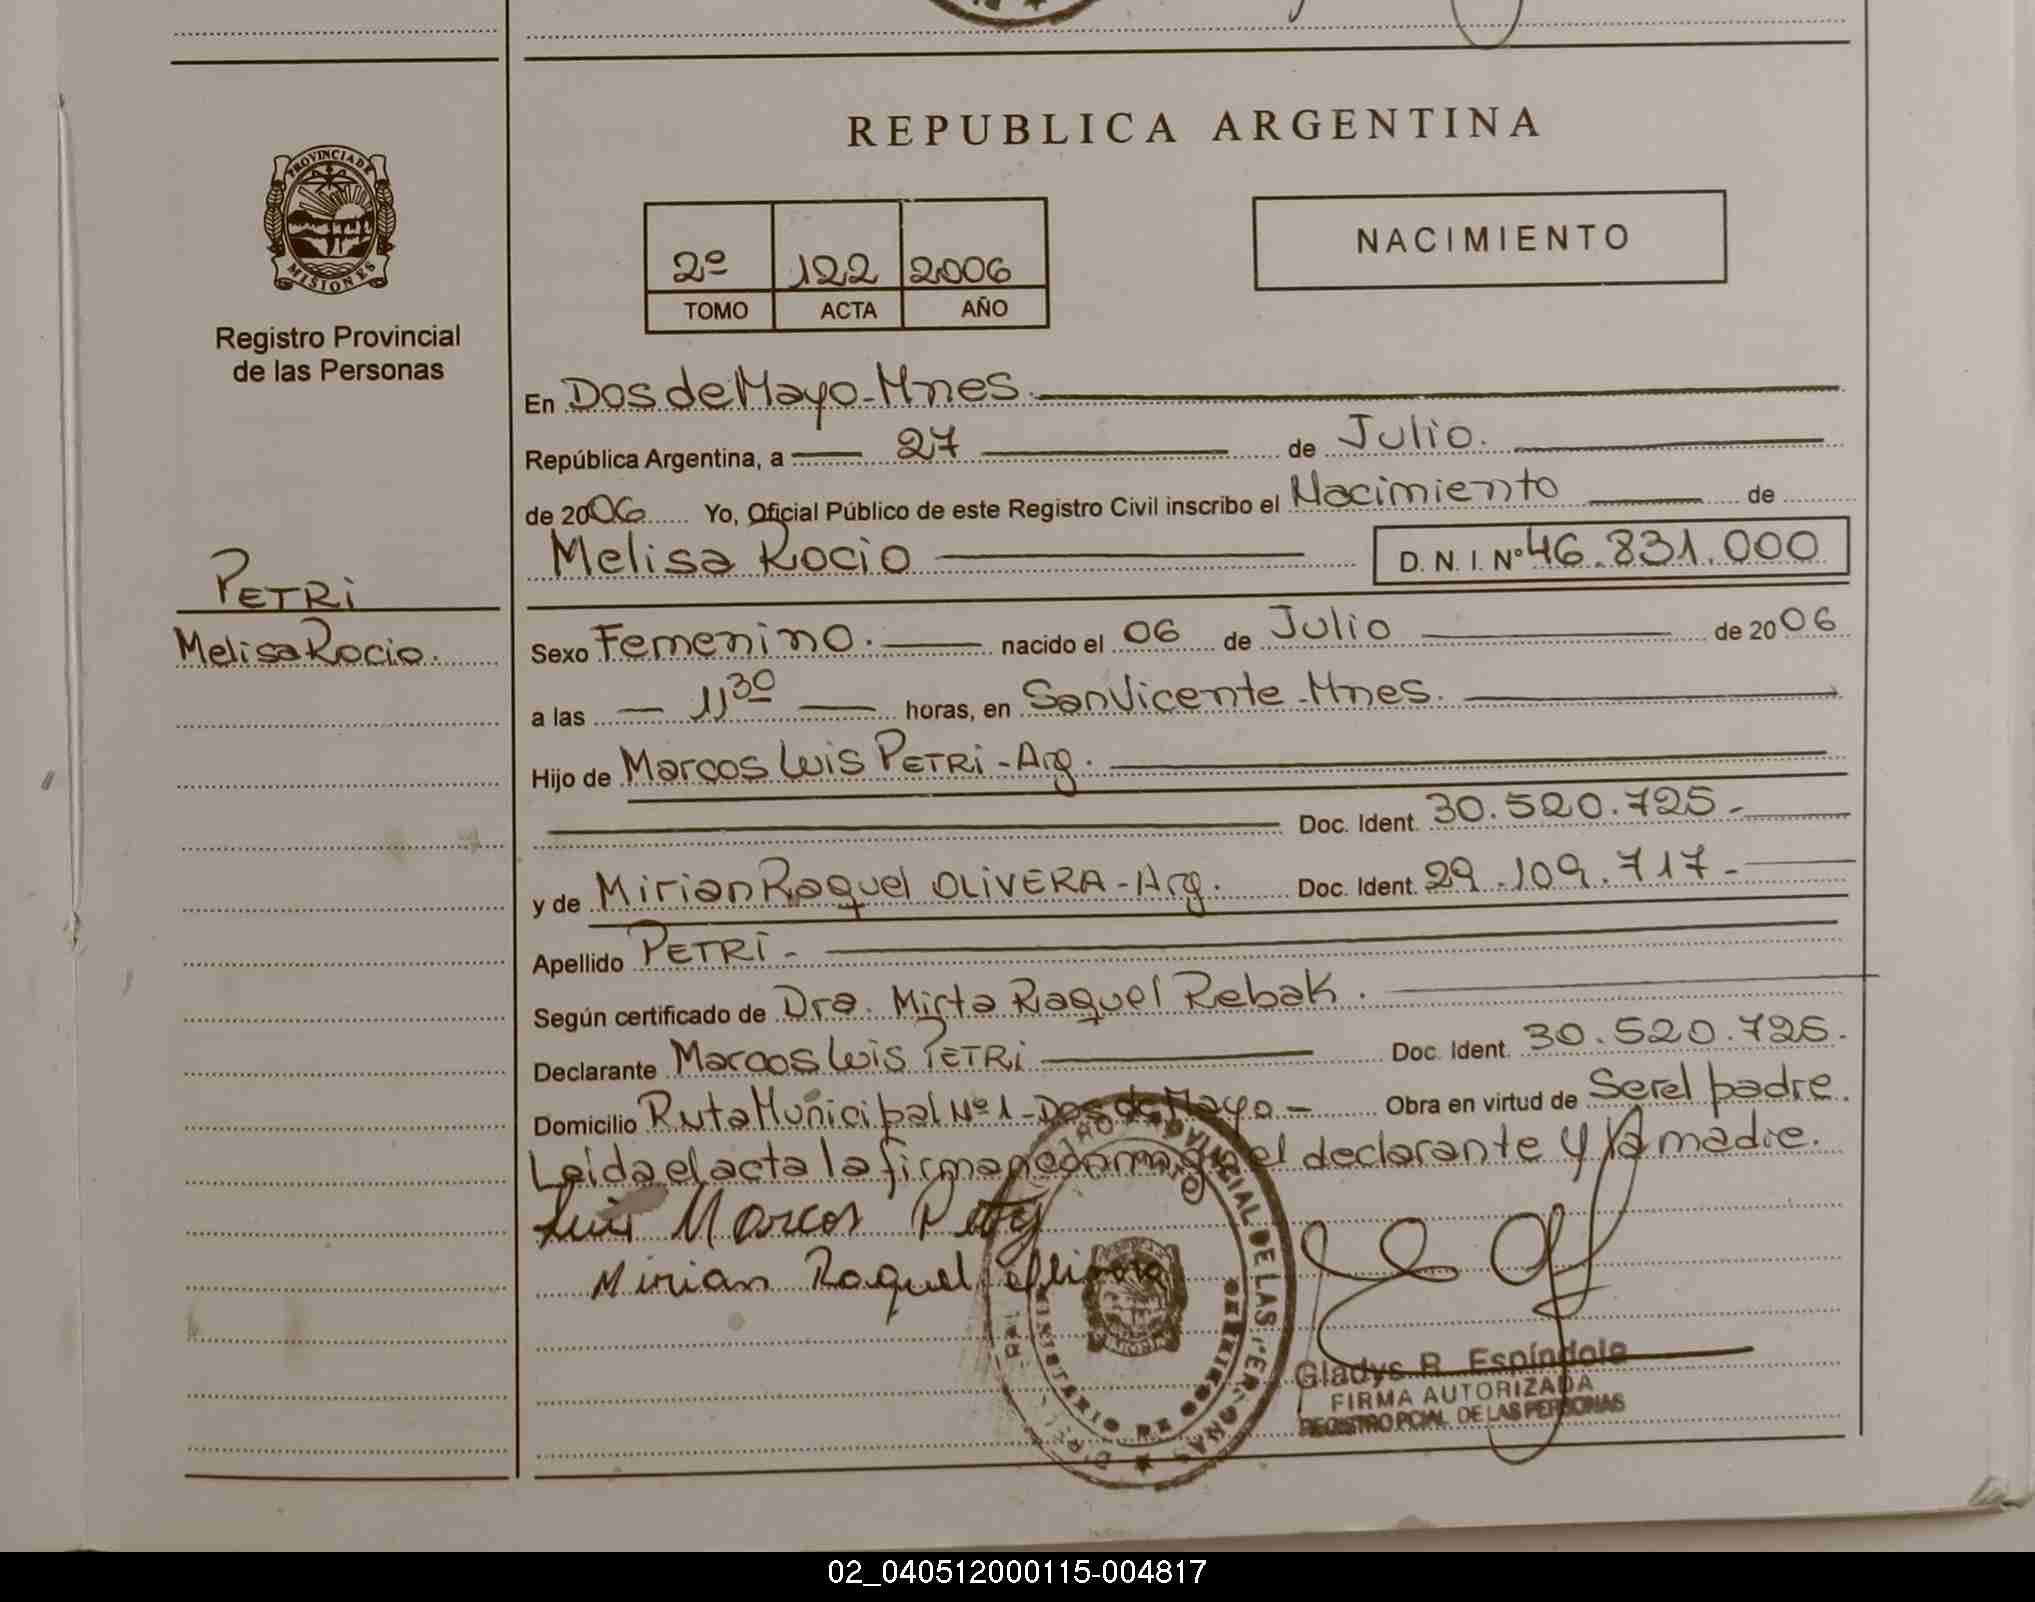 REPUBLICA ARGENTINA
PROVINCIA DE
MISIONES
Registro Provincial
de las Personas
2º 122 2006
TOMO ACTA AÑO
NACIMIENTO
En Dos de Mayo - Mnes.
República Argentina, a 27 de Julio.
de 2006 Yo, Oficial Público de este Registro Civil inscribo el Nacimiento de
Melisa Rocio D. N. I. Nº 46.831.000
PETRi
Melisa Rocio.
Sexo Femenino. nacido el 06 de Julio de 2006
a las 11 30 horas, en San Vicente - Mnes.
Hijo de Marcos Luis PETRi - Arg.
Doc. Ident. 30.520.725 -
y de Mirian Raquel OLiVERA - Arg. Doc. Ident. 29.109.717 -
Apellido PETRi -
Según certificado de Dra. Mirta Raquel Rebak.
Declarante Marcos Luis PETRi Doc. Ident. 30.520.725.
Domicilio Ruta Municipal Nº 1 - Dos de Mayo - Obra en virtud de Ser el padre.
Leida el acta la firman conmigo el declarante y la madre.
Luis Marcos Petry
Mirian Raquel Olivera
Gladys R. Espíndola
FIRMA AUTORIZADA
REGISTRO PCIAL. DE LAS PERSONAS
02_040512000115-004817